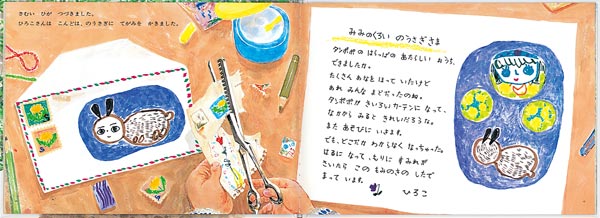 さむい ひが つづきました。
ひろこさんは こんどは、のうさぎに てがみを かきました。
みみのくろい のうさぎさま
タンポポの はらっぱの あたらしい おうち、
できましたか。
たくさん あなを ほって いたけど
あれ みんな まどだったのね。
タンポポが きいろい カーテンに なって、
なかから みると きれいだろうな。
また あそびに いきます。
でも、どこだか わからなく なっちゃった。
はるに なって、もりに すみれが
さいたら この もみのきの したで
まって います。
ひろこ